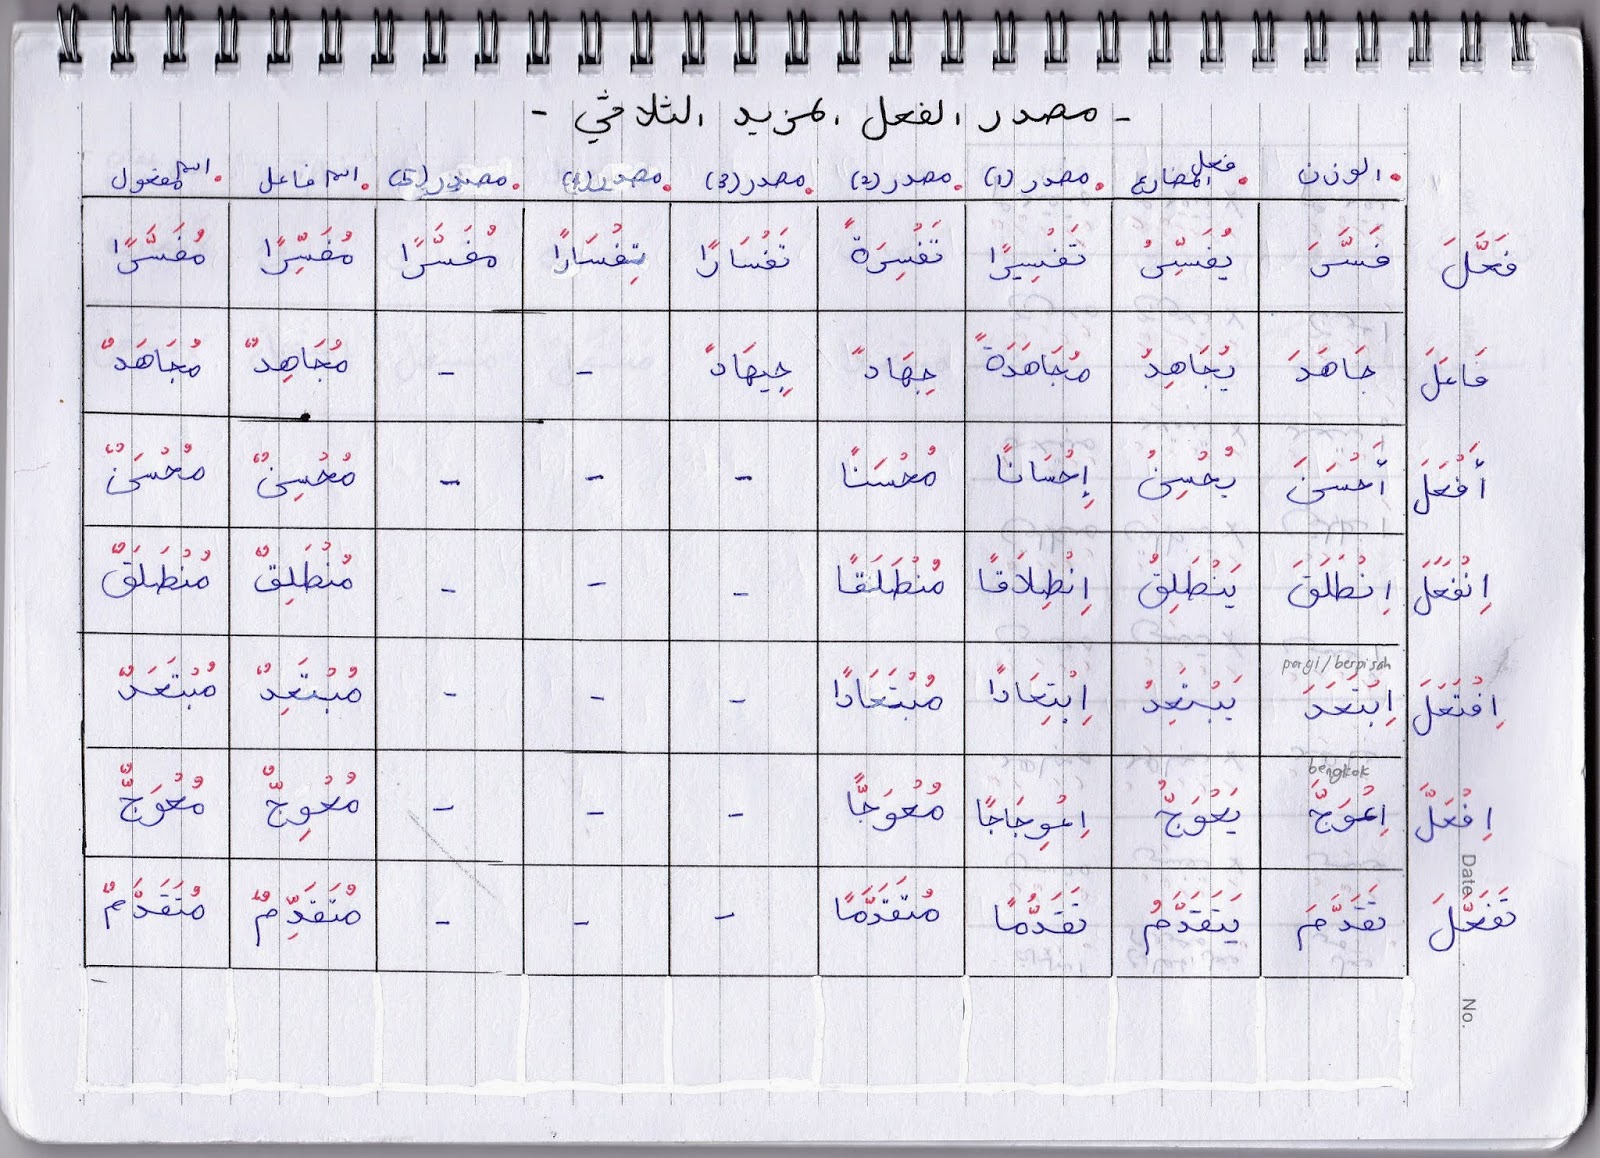 - مصدر الفعل المزيد الثلاثي -
الوزن فعل المضارع مصدر (١) مصدر (٢) مصدر (٣) مصدر (٤) مصدر (٥) اسم فاعل اسم مفعول
فَعَّلَ فَسَّرَ يُفَسِّرُ تَفْسِيْرًا تَفْسِرَةً تَفْسَارًا تِفْسَارًا مُفَسَّرًا مُفَسِّرًا مُفَسَّرًا
فَاعَلَ جَاهَدَ يُجَاهِدُ مُجَاهَدَةً جِهَادً جِيهَادً - - مُجَاهِدٌ مُجَاهَدٌ
أَفْعَلَ أَحْسَنَ يُحْسِنُ إِحْسَانًا مُحْسَنًا - - - مُحْسِنٌ مُحْسَنٌ
اِنْفَعَلَ اِنْطَلَقَ يَنْطَلِقُ اِنْطِلَاقًا مُنْطَلَقًا - - - مُنْطَلِقٌ مُنْطَلَقٌ
pergi/berpisah
اِفْتَعَلَ اِبْتَعَدَ يَبْتَعِدُ اِبْتِعَادًا مُبْتَعَادًا - - - مُبْتَعِدٌ مُبْتَعَدٌ
bengkok
اِفْعَلَّ اِعْوَجَّ يَعْوَجُّ اِعْوِجَاجًا مُعْوَجًّا - - - مُعْوِجٌّ مُعْوَجٌّ
تَفَعَّلَ تَقَدَّمَ يَتَقَدَّمُ تَقَدُّمًا مُتَقَدَّمًا - - - مُتَقَدِّمٌ مُتَقَدَّمٌ
Date
No.